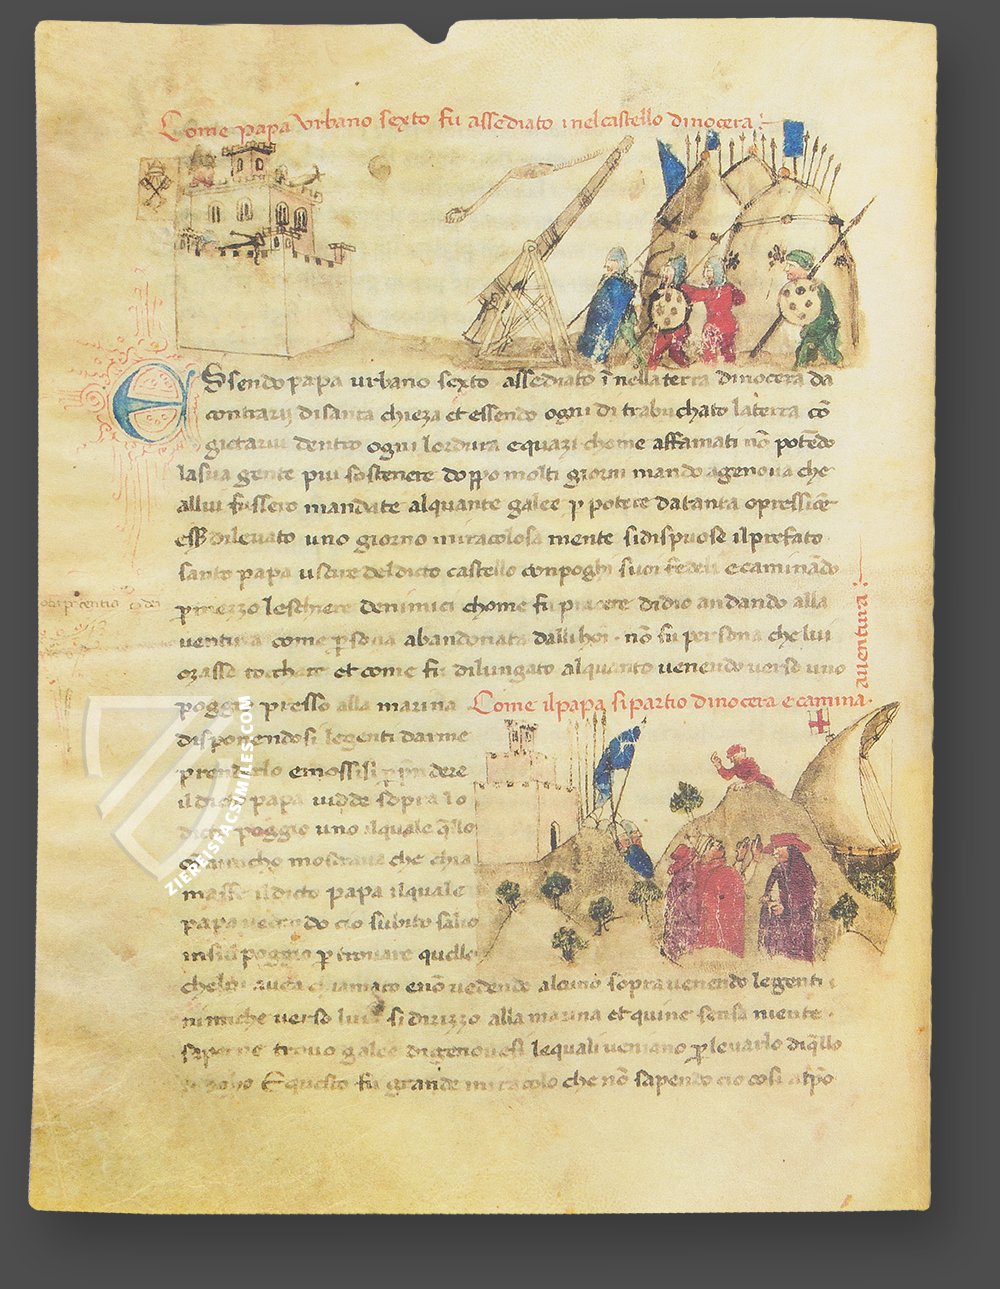 Come papa Vrbano sexto fu assediato inel castello di nocera
Essendo papa urbano sexto assediato ī nella terra di nocera da
contrarij di santa chieza et essendo ogni di trabuchato la terra cō
gictarui dentro ogni lordura e quazi chome affamati nō potēdo
la sua gente piu sostenere doppo molti giorni mando a genoua che
allui fussero mandate alquante galee p potere da tanta opressiōe
esser dileuato uno giorno miracolosa mente si dispuose il prefato
santo papa uscire del dicto castello con poghi suoi fedeli e caminādo
p mezzo le schiere de nimici chome fu piacere di dio andando alla
ventura come psona abandonata dalli hoī · nō fu persona che lui
ozasse tocchare et come fu dilungato alquanto venendo verso uno
poggio presso alla marina
Come il papa si partio di nocera e camina
auentura
disponendosi le genti darme
prenderlo e mossisi p prindere
il dicto papa uidde sopra lo
dicto poggio uno il quale q̄llo
che chia
masse il dicto papa il quale
papa uedendo cio subito salio
in sul poggio p trouare quello
che lui auea chiamato e nō uedendo alcuno sopra uenendo le genti
nimiche uerso lui si dirizzo alla marina et quine sensa niente
saperne trouo galee di genouesi le quali ueniano p leuarlo di q̄llo
luogho E questo fu grande miracolo che nō sapendo cio cosi aspo
ZIEREISFACSIMILES.COM